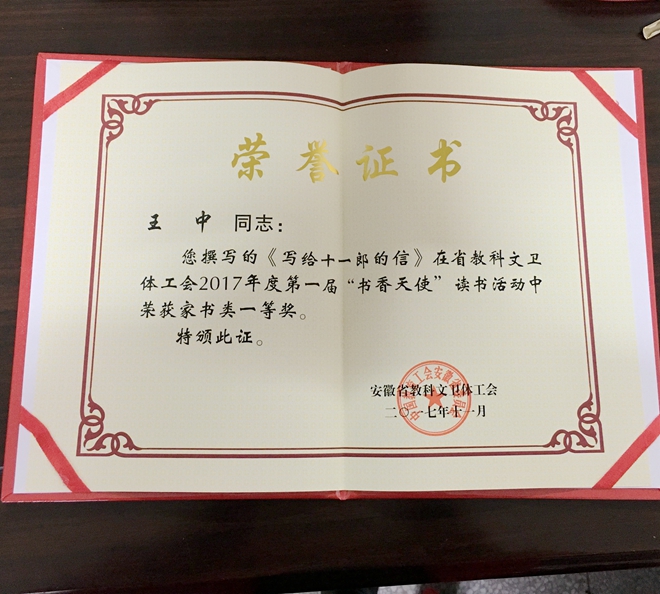 荣誉证书
王 中 同志：
您撰写的《写给十一郎的信》在省教科文卫
体工会2017年度第一届“书香天使”读书活动中
荣获家书类一等奖。
特颁此证。
安徽省教科文卫体工会
二〇一七年十一月